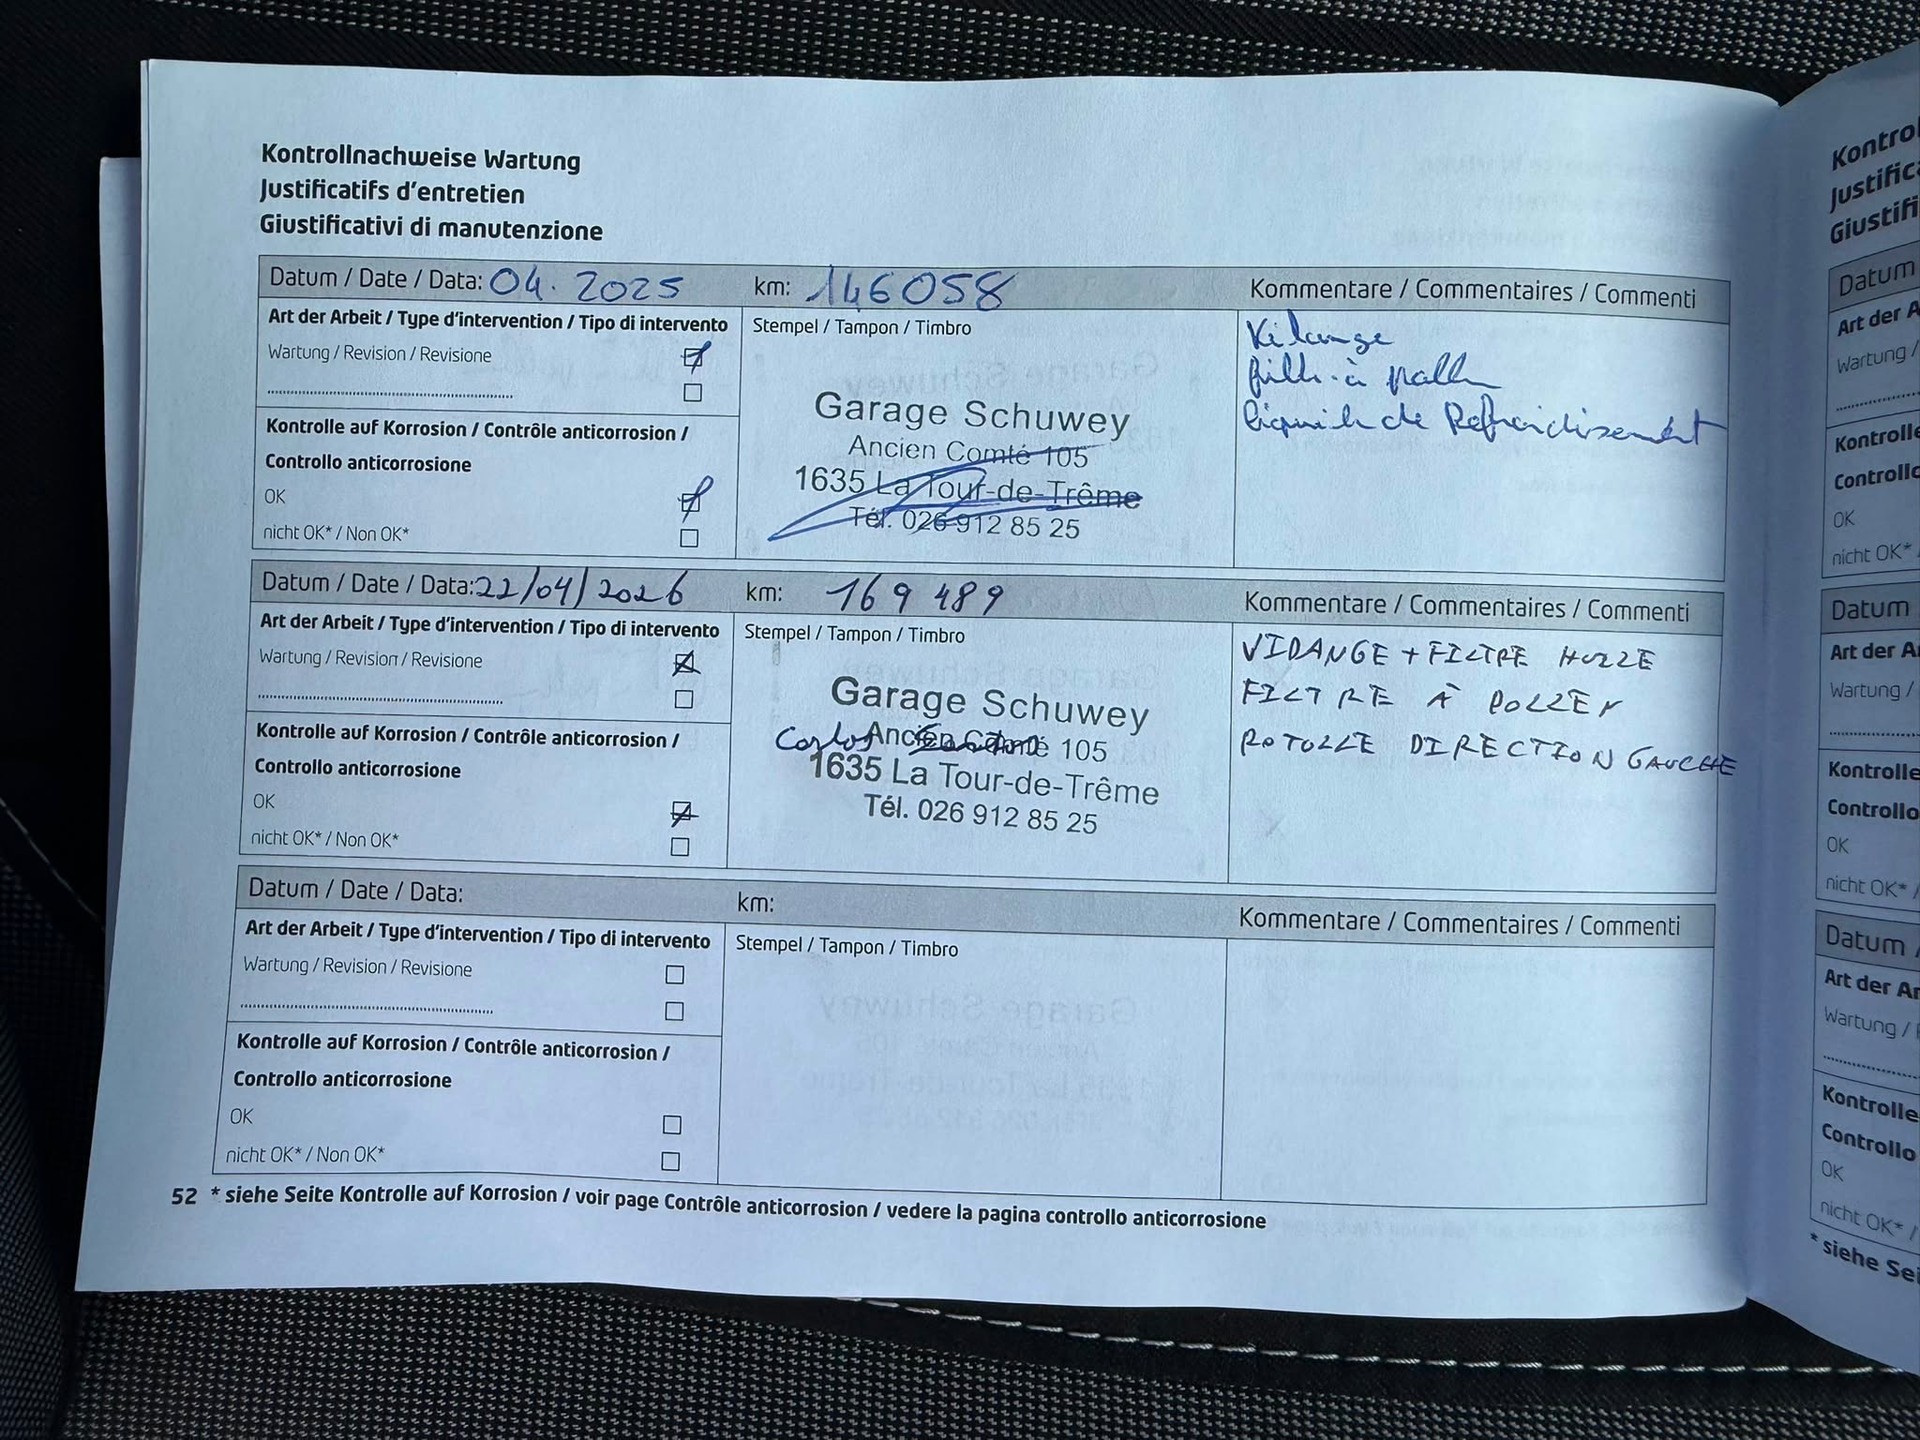 Kontrollnachweise Wartung
Justificatifs d'entretien
Giustificativi di manutenzione
Datum / Date / Data: 04. 2025 km: 146058 Kommentare / Commentaires / Commenti
Art der Arbeit / Type d'intervention / Tipo di intervento
Wartung / Revision / Revisione
Kontrolle auf Korrosion / Contrôle anticorrosion /
Controllo anticorrosione
OK
nicht OK* / Non OK*
Stempel / Tampon / Timbro
Garage Schuwey
Ancien Comté 105
1635 La Tour-de-Trême
Tél. 026 912 85 25
à
de Refroidissement
Datum / Date / Data: 22/04/2026 km: 169 489 Kommentare / Commentaires / Commenti
Art der Arbeit / Type d'intervention / Tipo di intervento
Wartung / Revision / Revisione
Kontrolle auf Korrosion / Contrôle anticorrosion /
Controllo anticorrosione
OK
nicht OK* / Non OK*
Stempel / Tampon / Timbro
Garage Schuwey
Carlos Ancien Comté 105
1635 La Tour-de-Trême
Tél. 026 912 85 25
VIDANGE + FILTRE HUILE
FILTRE À POLLEN
ROTULE DIRECTION GAUCHE
Datum / Date / Data: km: Kommentare / Commentaires / Commenti
Art der Arbeit / Type d'intervention / Tipo di intervento
Wartung / Revision / Revisione
Kontrolle auf Korrosion / Contrôle anticorrosion /
Controllo anticorrosione
OK
nicht OK* / Non OK*
Stempel / Tampon / Timbro
52 * siehe Seite Kontrolle auf Korrosion / voir page Contrôle anticorrosion / vedere la pagina controllo anticorrosione
Datum
Art der
Wartung /
Kontrolle
OK
nicht OK* /
Datum
Art der
Wartung /
Kontrolle
Controllo
OK
nicht OK* /
Datum /
Art der
Wartung /
Kontrolle
Controllo
OK
nicht OK* /
* siehe